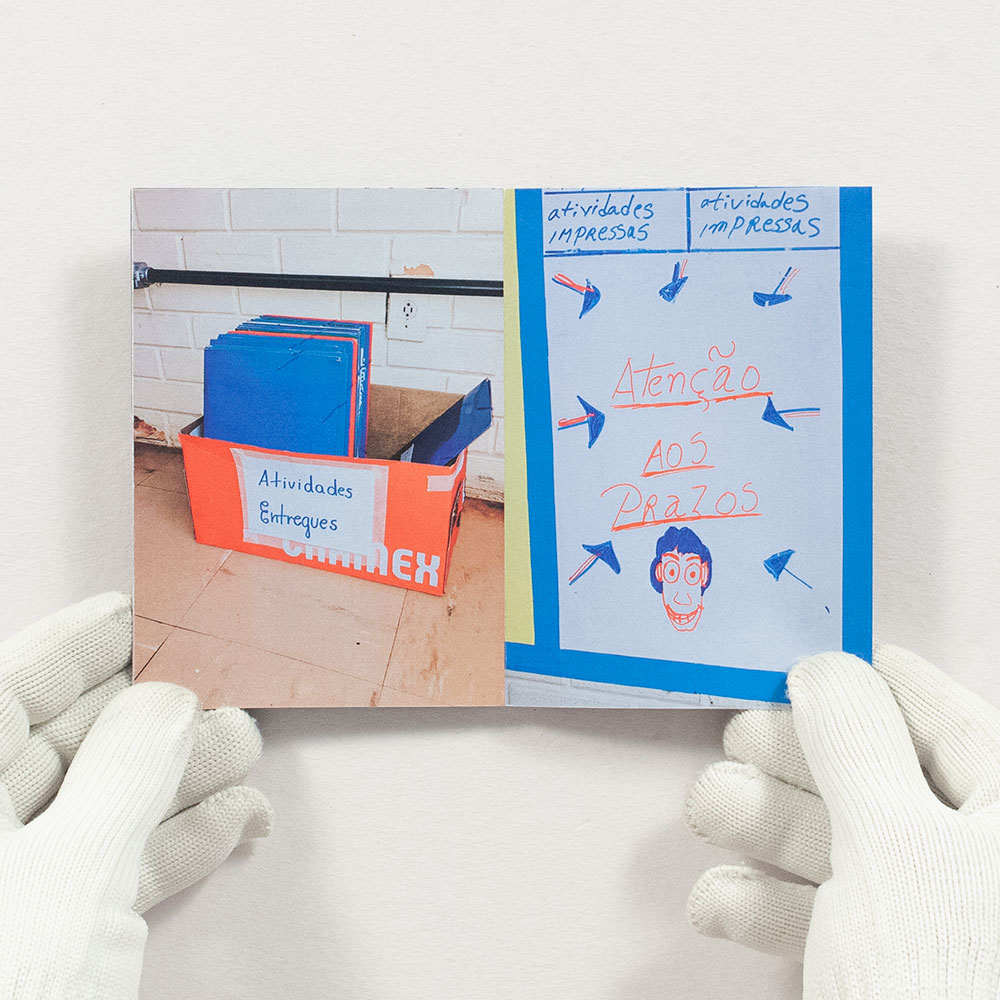 Atividades
Entregues
CHAMEX
atividades
IMPRESSAS
atividades
IMPRESSAS
Atenção
AOS
PRAZOS